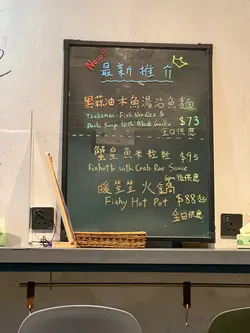 New!!
最新推介
黑蒜油木魚湯沾魚麵
Tsukemen-Fish Noodles &
Pork Soup With Black Garlic
$73
全日供應
蟹皇魚米粒粒 $95
Fishotto with Crab Roe Sauce
6pm後供應
暖笠笠火鍋
Fishy Hot Pot $88起
全日供應